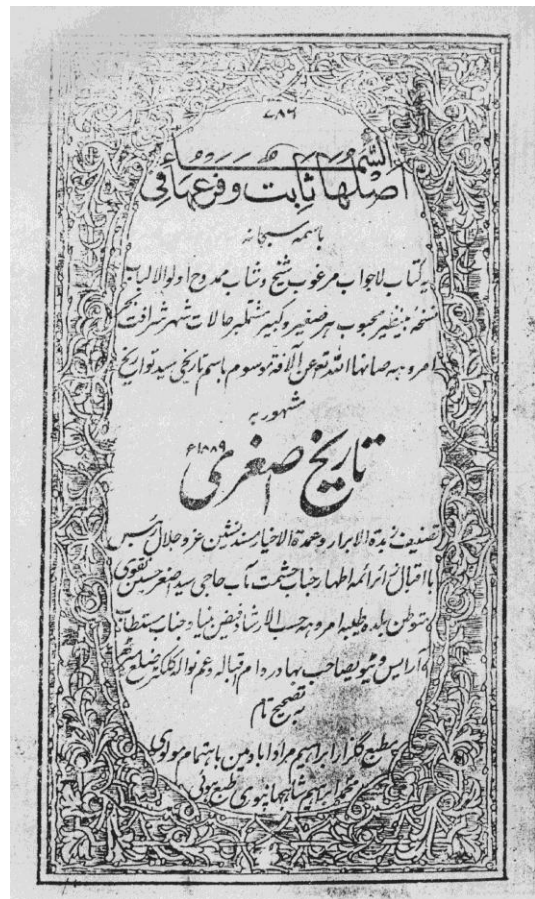 ۷۸۶
اصلها ثابت و فرعها فی السماء
باسمہ سبحانہ
یہ کتاب لاجواب مرغوب شیخ و شاب ممدوح اولوالالباب
نسخۂ بینظیر محبوب ہر صغیر و کبیر مشتملبر حالات شہر شرافت
امروہہ صانہا اللہ تع عن آلافۃ موسوم باسم تاریخی سید تواریخ
مشہور بہ
تاریخ اصغری ۱۸۸۹ع
تصنیف زبدۃ الابرار و عمدۃ الاخیار مسند نشین عز و جلال رئیس
با اقبال زائر ائمہ اطہار جناب حشمت مآب حاجی سید اصغر حسین نقوی
متوطن بلدہ طیبہ امروہہ حسب الارشاد فیض بنیاد جناب مستطاب
صاحب بہادر دام اقبالہ و عم نوالہ کلکٹر ضلع
بہ تصحیح تام
بمطبع گلزار ابراہیم مرادآباد مین باہتمام مولوی
محمد ابراہیم شاہجہانپوری طبع ہوئی